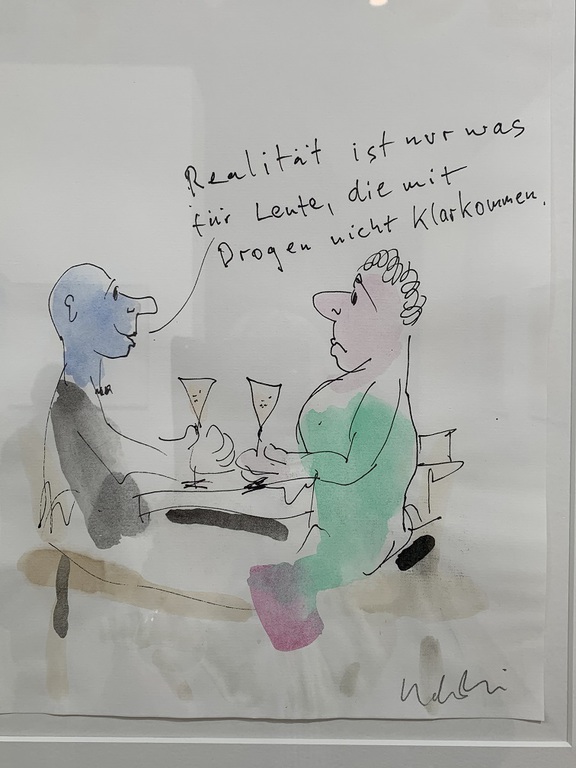 Realität ist nur was
für Leute, die mit
Drogen nicht klarkommen.